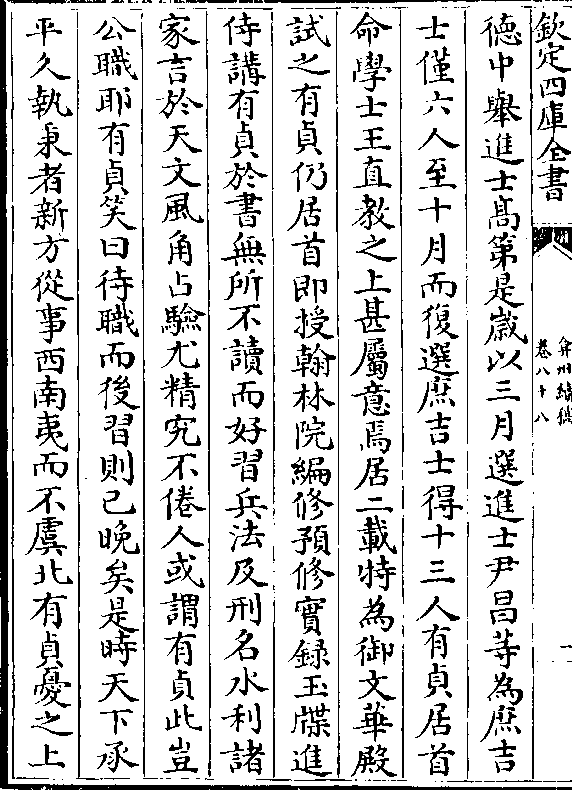 欽定四庫全書
弇州續稿
卷八十八
一
德中舉進士髙第是嵗以三月選進士尹昌等為庶吉
士僅六人至十月而復選庶吉士得十三人有貞居首
命學士王直教之上甚屬意焉居二載特為御文華殿
試之有貞仍居首即授翰林院編修預修實録玉牒進
侍講有貞於書無所不讀而好習兵法及刑名水利諸
家言於天文風角占驗尤精究不倦人或謂有貞此豈
公職耶有貞笑曰待職而後習則已晚矣是時天下承
平久執秉者新方從事西南夷而不虞北有貞憂之上